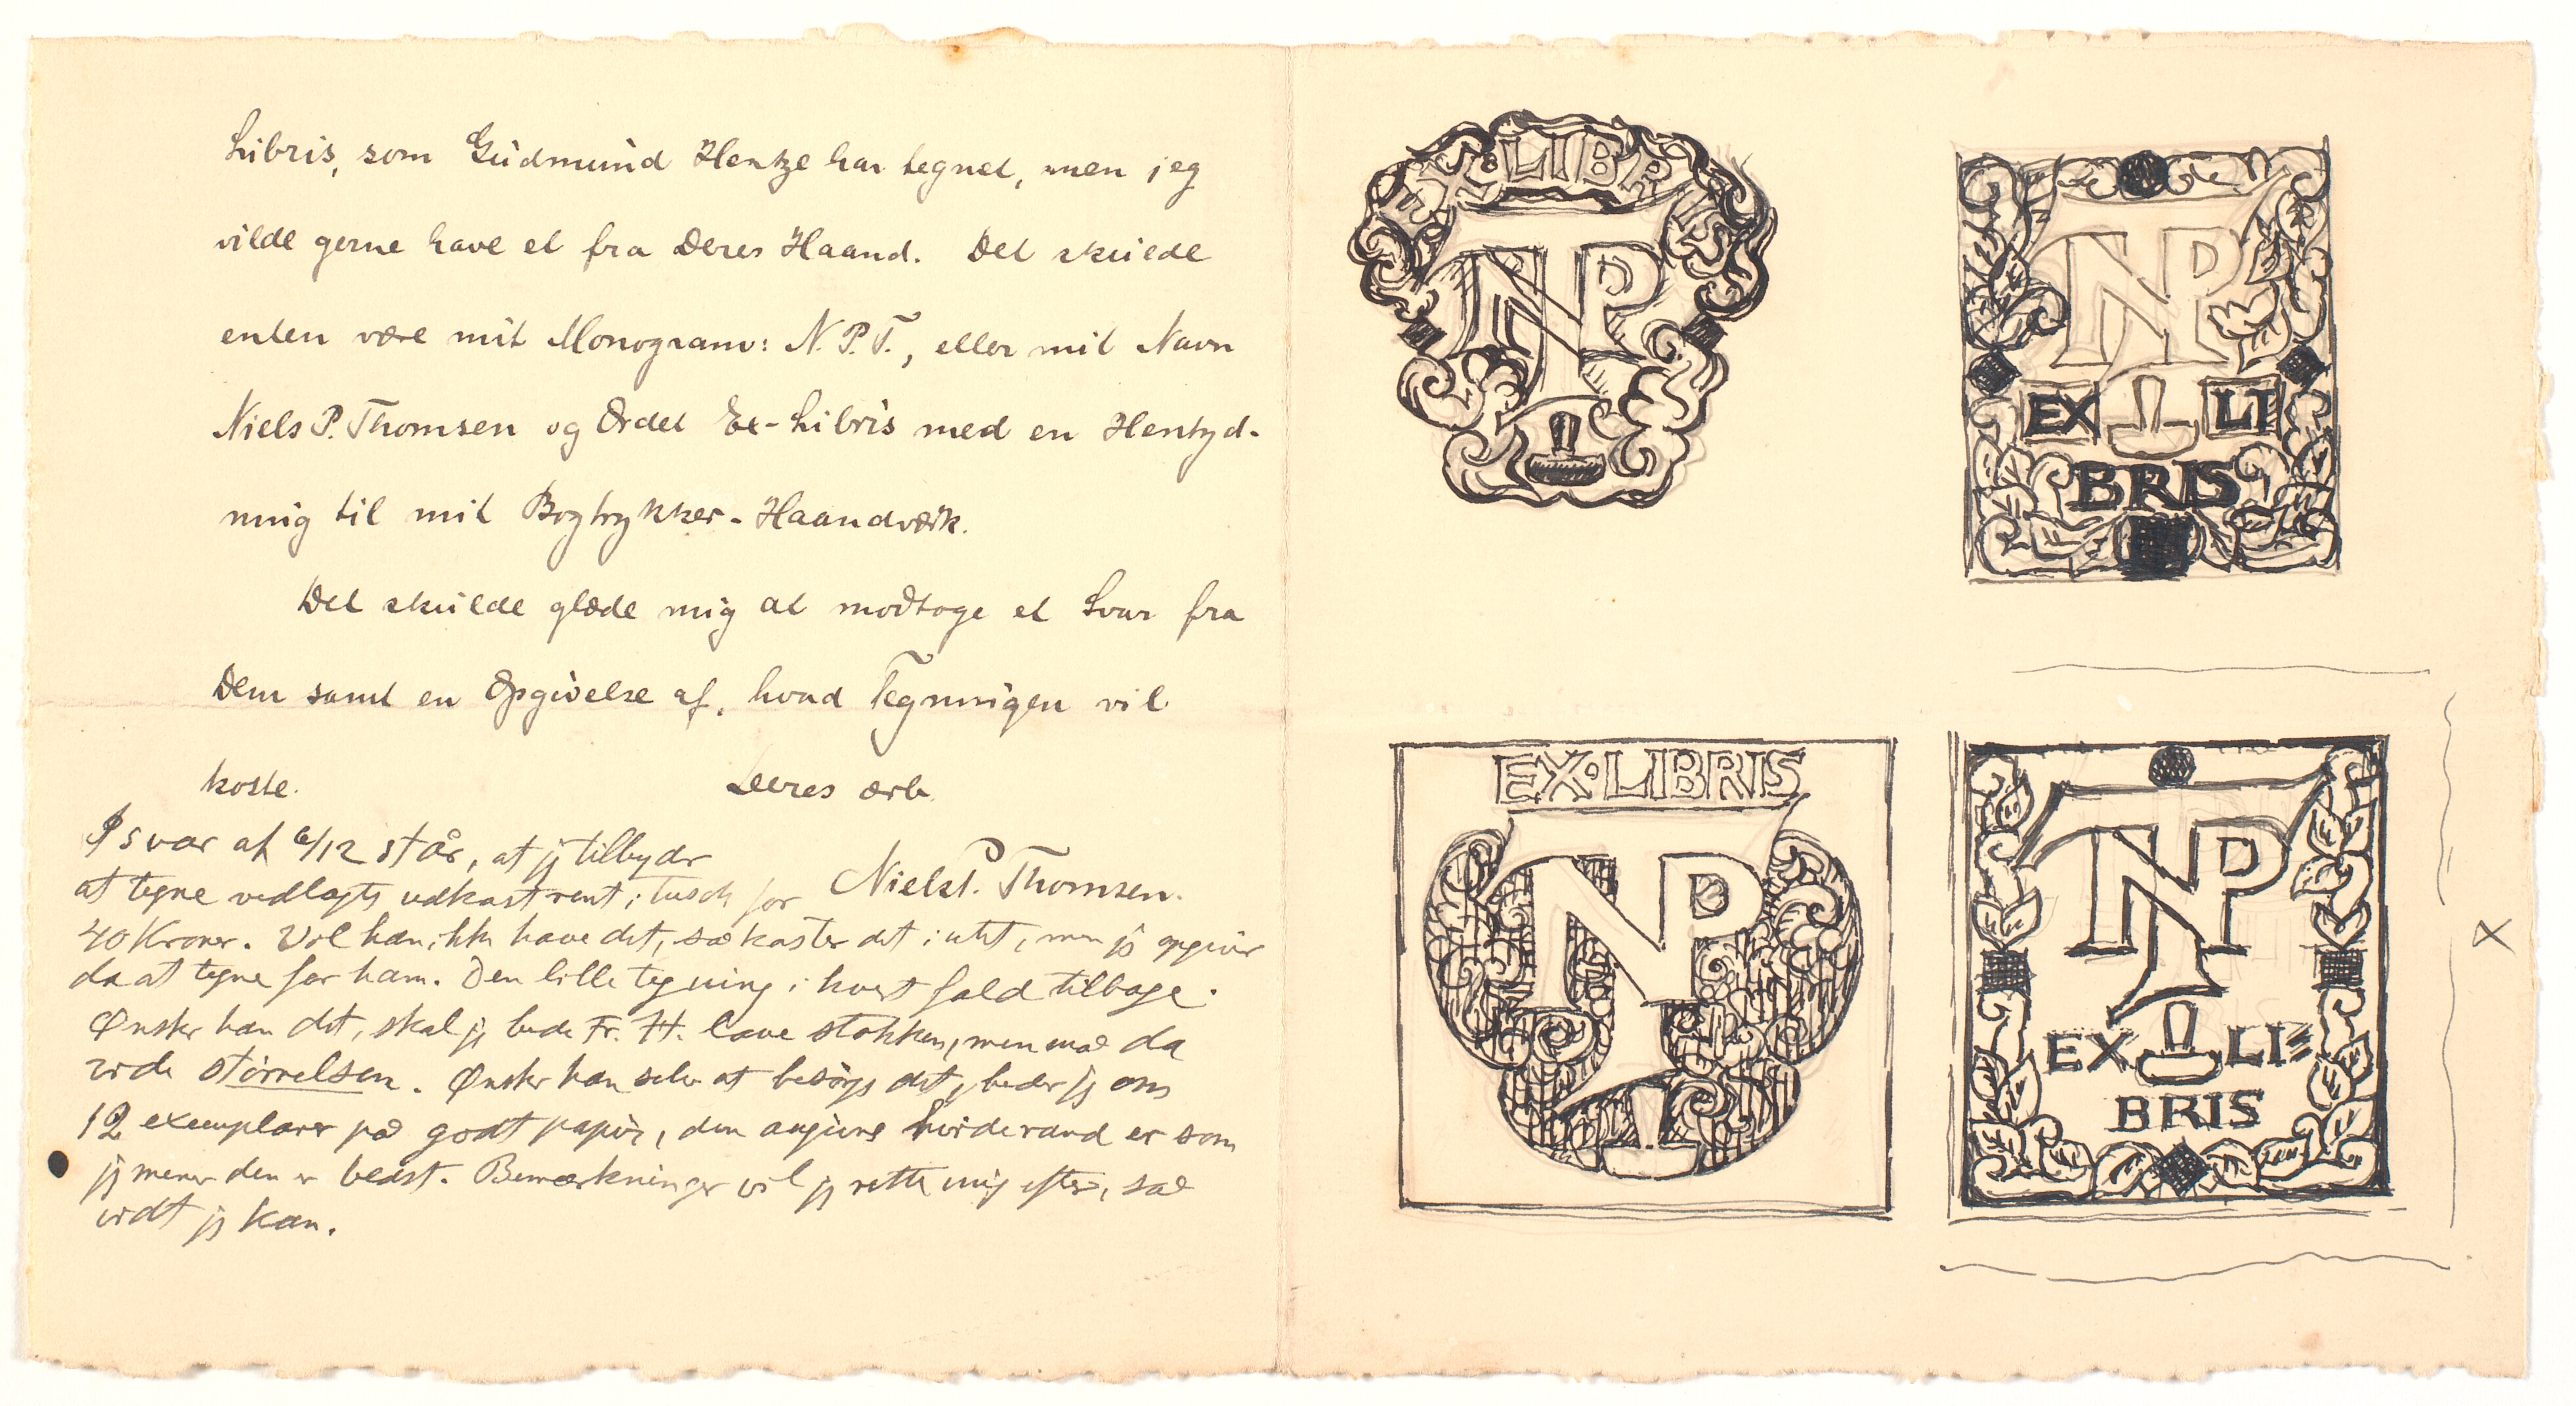 Libris, som Gudmund Hentze har tegnet, men jeg
vilde gerne have et fra Deres Haand. Det skulde
enten være mit Monogram: N. P. T., eller mit Navn
Niels P. Thomsen og Ordet Ex-Libris med en Hentyd-
ning til mit Bogtrykker-Haandværk.
Det skulde glæde mig at modtage et Svar fra
Dem samt en Opgivelse af, hvad Tegningen vil
koste.
Deres ærb.
Niels P. Thomsen.
I svar af 6/12 står, at jg tilbydr
at tegne vedlagts udkast rent i tusch for
40 Kroner. Vil han ikke have det, så kaster det intet, men jg opgiver
da at tegne for ham. Den lille tegning i hvert fald tilbage.
Ønsker han det, skal jg bede Fr. H. lave stokken, men må da
vide størrelsen. Ønsker han selv at besørge det, beder jg om
12 exemplarer på godt papir, den angivne hvide rand er som
jg mener den er bedst. Bemærkninger vil jg rette mig efter, så
vidt jg kan.
EX·LIBRIS
NPT
NPT
EX LI
BRIS
EX·LIBRIS
NPT
NPT
EX LI=
BRIS
X